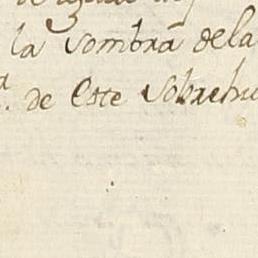 la sombra dela
de Este Sobrehu